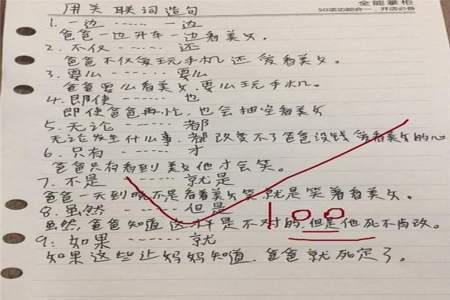 全能掌柜
50项功能合一,开店必备
用关联词造句
1. 一边 ······ 一边
爸爸一边开车一边看美女。
2. 不仅 ······ 还
爸爸不仅爱玩手机还爱看美女。
3. 要么 ······ 要么
爸爸要么看美女,要么玩手机。
4. 即使 ······ 也
即使爸爸再忙,也会抽空看美女
5. 无论 ······ 都
无论发生什么事,都改变不了爸爸没钱爱看美女的心
6. 只有 ······ 才
爸爸只有看到美女他才会笑。
7. 不是 ······ 就是
爸爸一天到晚不是看着美女笑就是笑着看美女。
8. 虽然 ······ 但是
虽然,爸爸知道这样是不对的,但是他死不肯改。
9: 如果 ······ 就
如果这些让妈妈知道,爸爸就死定了。
100